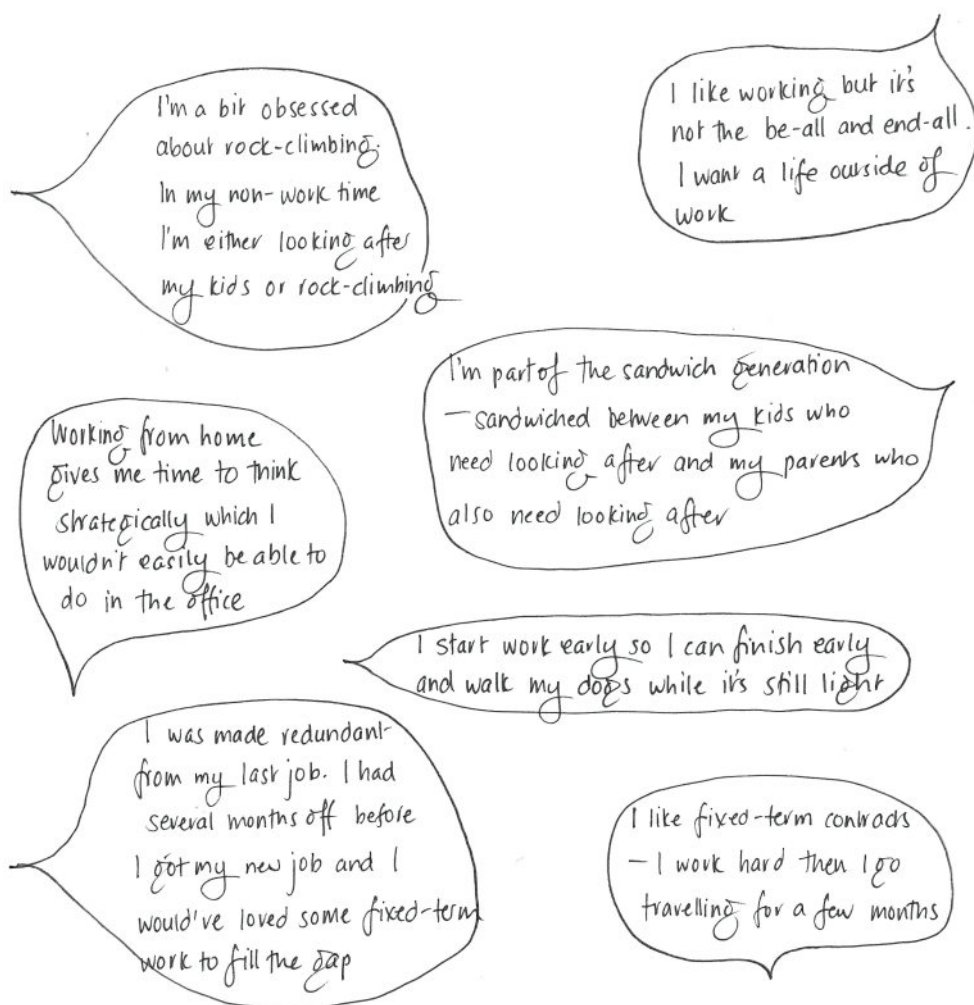 I'm a bit obsessed
about rock-climbing.
In my non-work time
I'm either looking after
my kids or rock-climbing
I like working but it's
not the be-all and end-all.
I want a life outside of
work
I'm part of the sandwich generation
– sandwiched between my kids who
need looking after and my parents who
also need looking after
Working from home
gives me time to think
strategically which I
wouldn't easily be able to
do in the office
I start work early so I can finish early
and walk my dogs while it's still light
I was made redundant
from my last job. I had
several months off before
I got my new job and I
would've loved some fixed-term
work to fill the gap
I like fixed-term contracts
– I work hard then I go
travelling for a few months